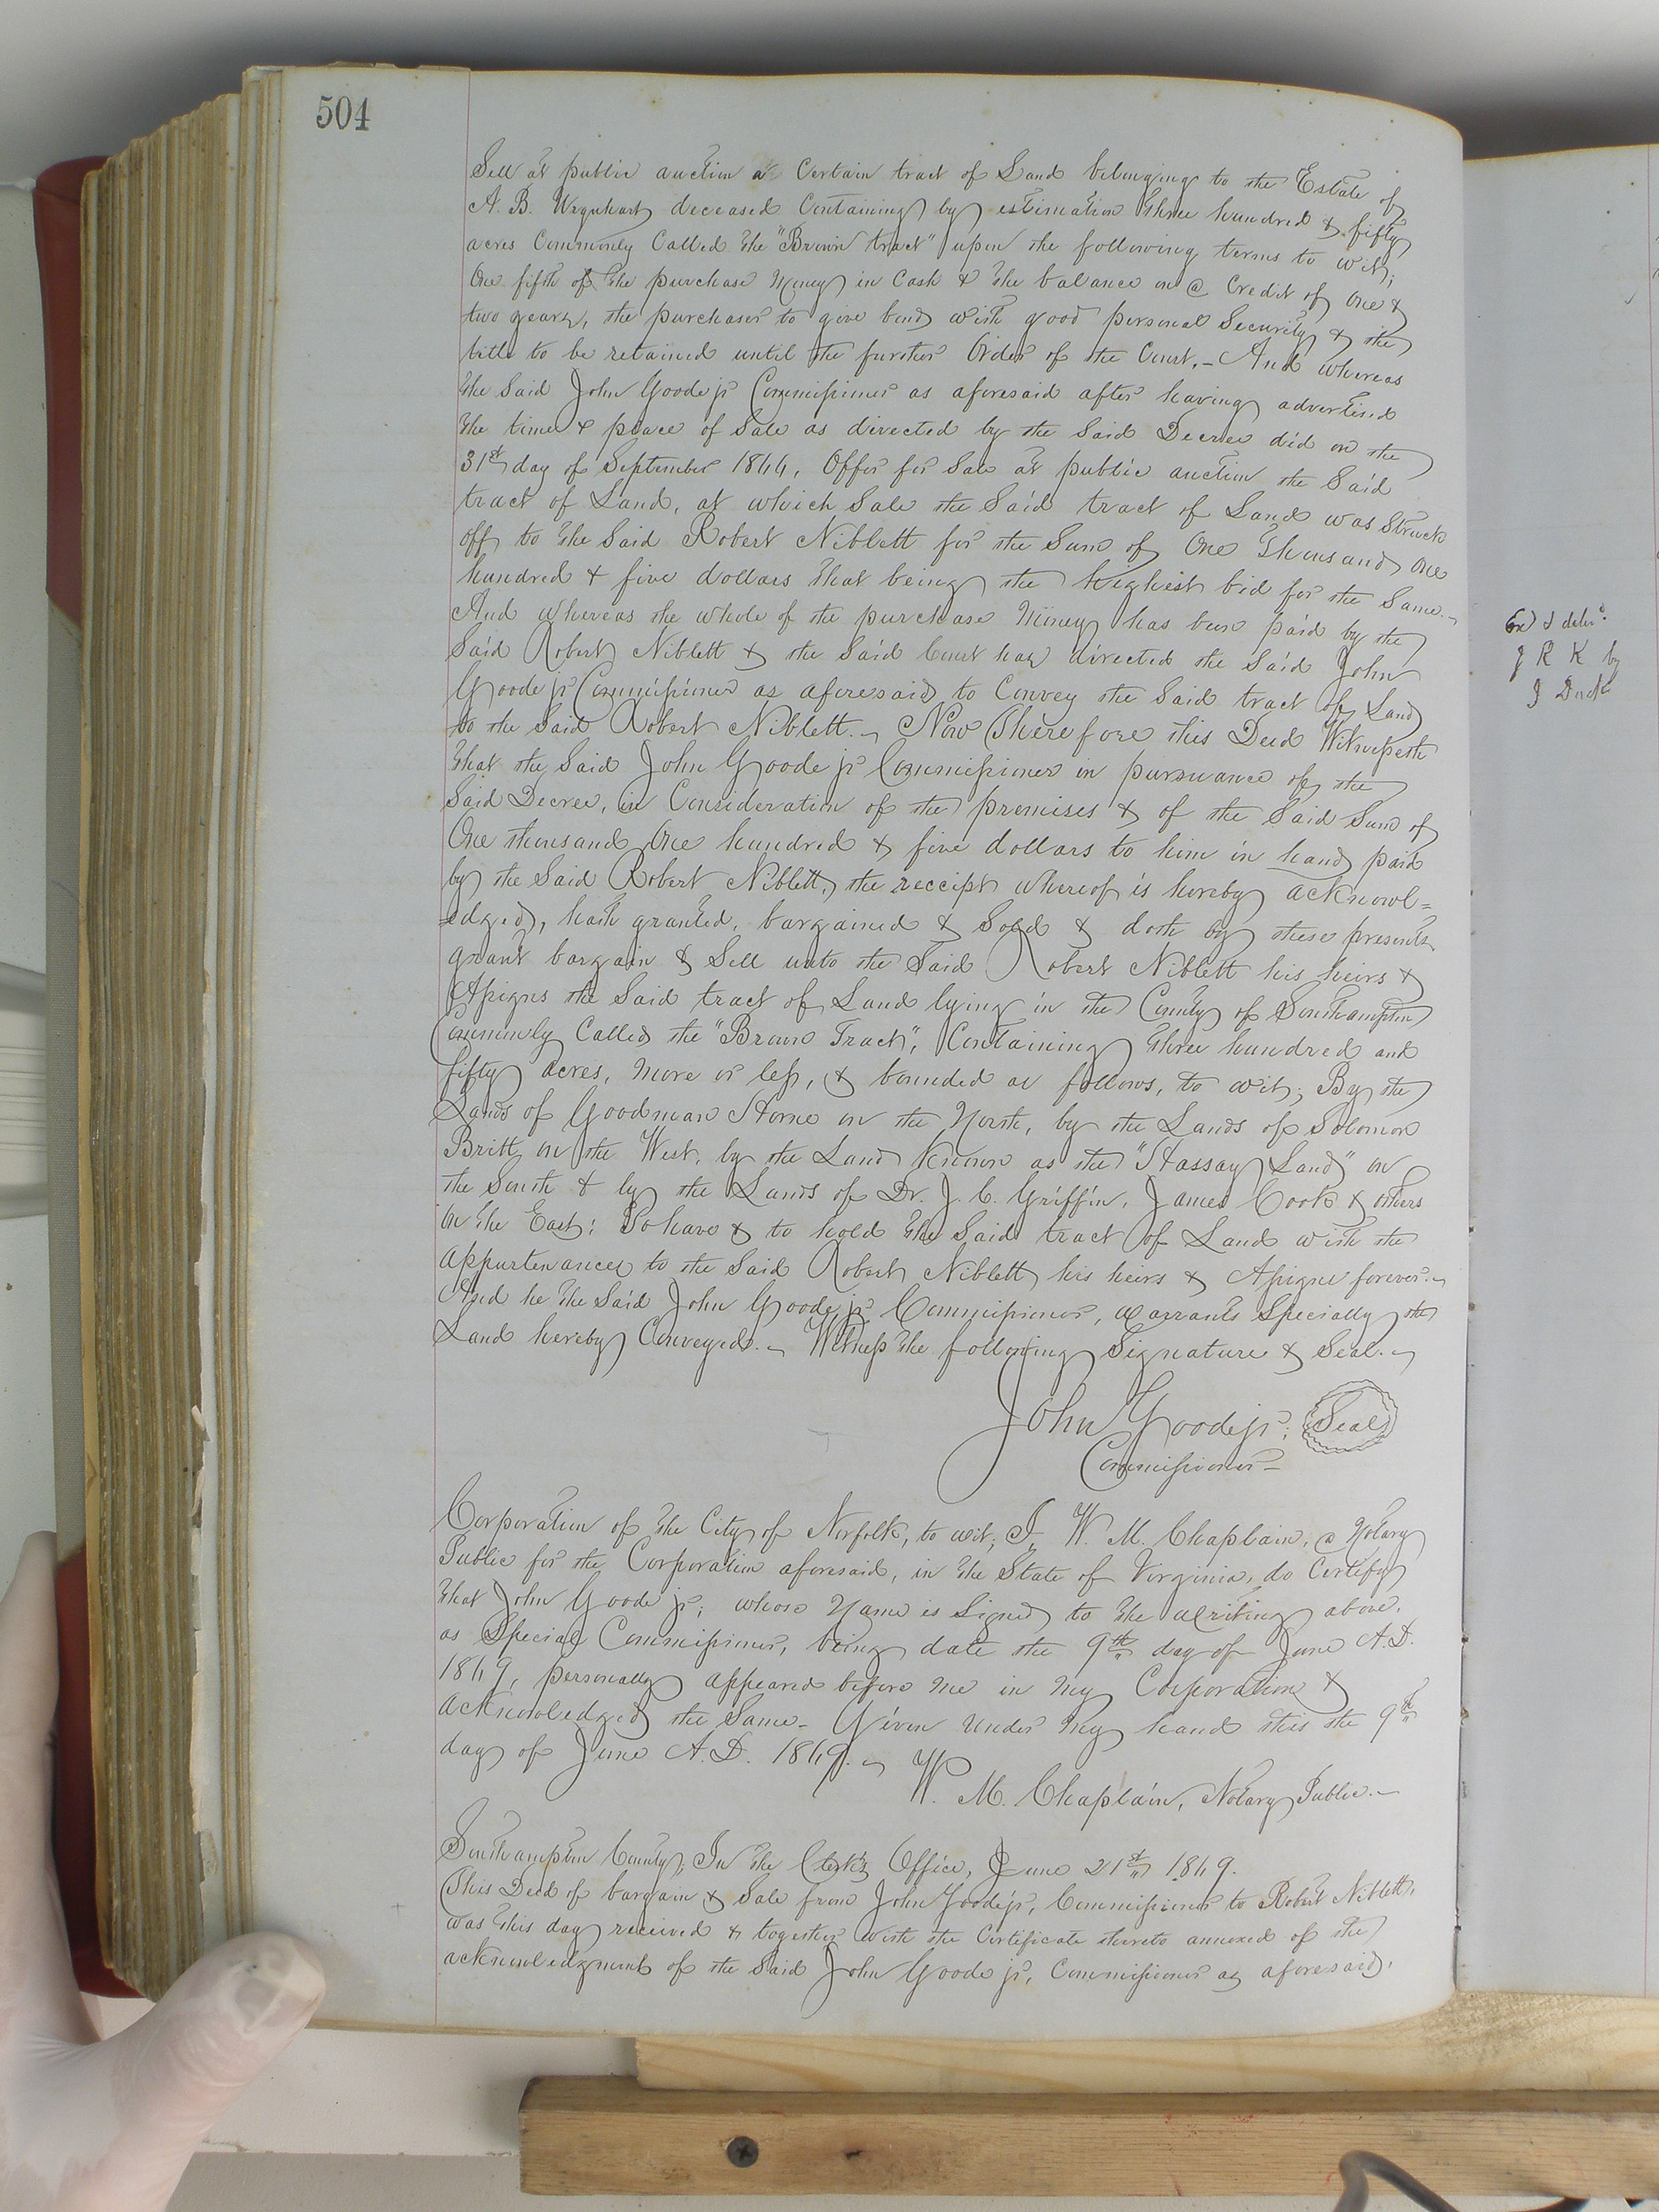 504
Sell at public auction a Certain tract of Land belonging to the Estate of
A. B. Urquhart deceased Containing by estimation three hundred & fifty
acres Commonly Called the "Brown tract" upon the following terms to wit;
One fifth of the purchase Money in Cash & the balance on @ Credit of one &
two years, the purchaser to give bond with good personal Security & the
title to be retained until the further Order of the Court.- And whereas
the Said John Goode jr Commissioner as aforesaid after having advertised
the time & place of Sale as directed by the Said Decree did on the
31st day of September Offer for Sale at public auction the Said
tract of Land, at which Sale the Said tract of Land was Struck
off to the Said Robert Niblett for the Sum of One Thousand One
hundred & five dollars that being the highest bid for the Same.-
And whereas the whole of the purchase Money has been paid by the
Said Robert Niblett & the Said Court has directed the Said John
Goode jr Commissioner as aforesaid to Convey the Said tract of Land
to the Said Robert Niblett.- Now Therefore this Deed Witnesseth
that the Said John Goode jr Commissioner in pursuance of the
Said Decree, in Consideration of the premises & of the Said Sum of
One thousand One hundred & five dollars to him in hand paid
by the Said Robert Niblett, the receipt whereof is hereby acknowl=
=edged, hath granted, bargained & Sold & doth by these presents
grant bargain & Sell unto the Said Robert Niblett his heirs &
Assigns the Said tract of Land lying in the County of Southampton
Commonly Called the "Brown Tract", Containing three hundred and
fifty acres, more or less, & bounded as follows, to wit; By the
Lands of Goodman Horne on the North, by the Lands of Solomon
Britt on the West, by the Land known as the "Hassay Land" on
the South & by the Lands of Dr. J. C. Griffin, James Cook & others
On the East: To have & to hold the Said tract of Land with the
appurtenances to the Said Robert Niblett his heirs & Assigns forever.-
And he the Said John Goode jr. Commissioner, Warrants Specially the
Land hereby Conveyed.- Witness the following Signature & Seal.-
John Goode jr; Seal
Commissioner-
Corporation of the City of Norfolk, to wit; I, W. M. Chaplain, a Notary
Public for the Corporation aforesaid, in the State of Virginia, do Certify
that John Goode jr; whose Name is Signed to the Writing above,
as Special Commissioner, being date the 9th day of June A.D.
1869, personally appeared before me in my Corporation &
acknowledged the Same- Given Under my hand this the 9th
day of June A.D. 1869.-
W. M. Chaplain, Notary Public.-
Southampton County; In the Clerk's Office, June 21st 1869.
This Deed of bargain & Sale from John Goode jr, Commissioner to Robert Niblett,
was this day received & together with the Certificate thereto annexed of the
acknowledgment of the Said John Goode jr, Commissioner as aforesaid,
Exd & deld.
J R K by